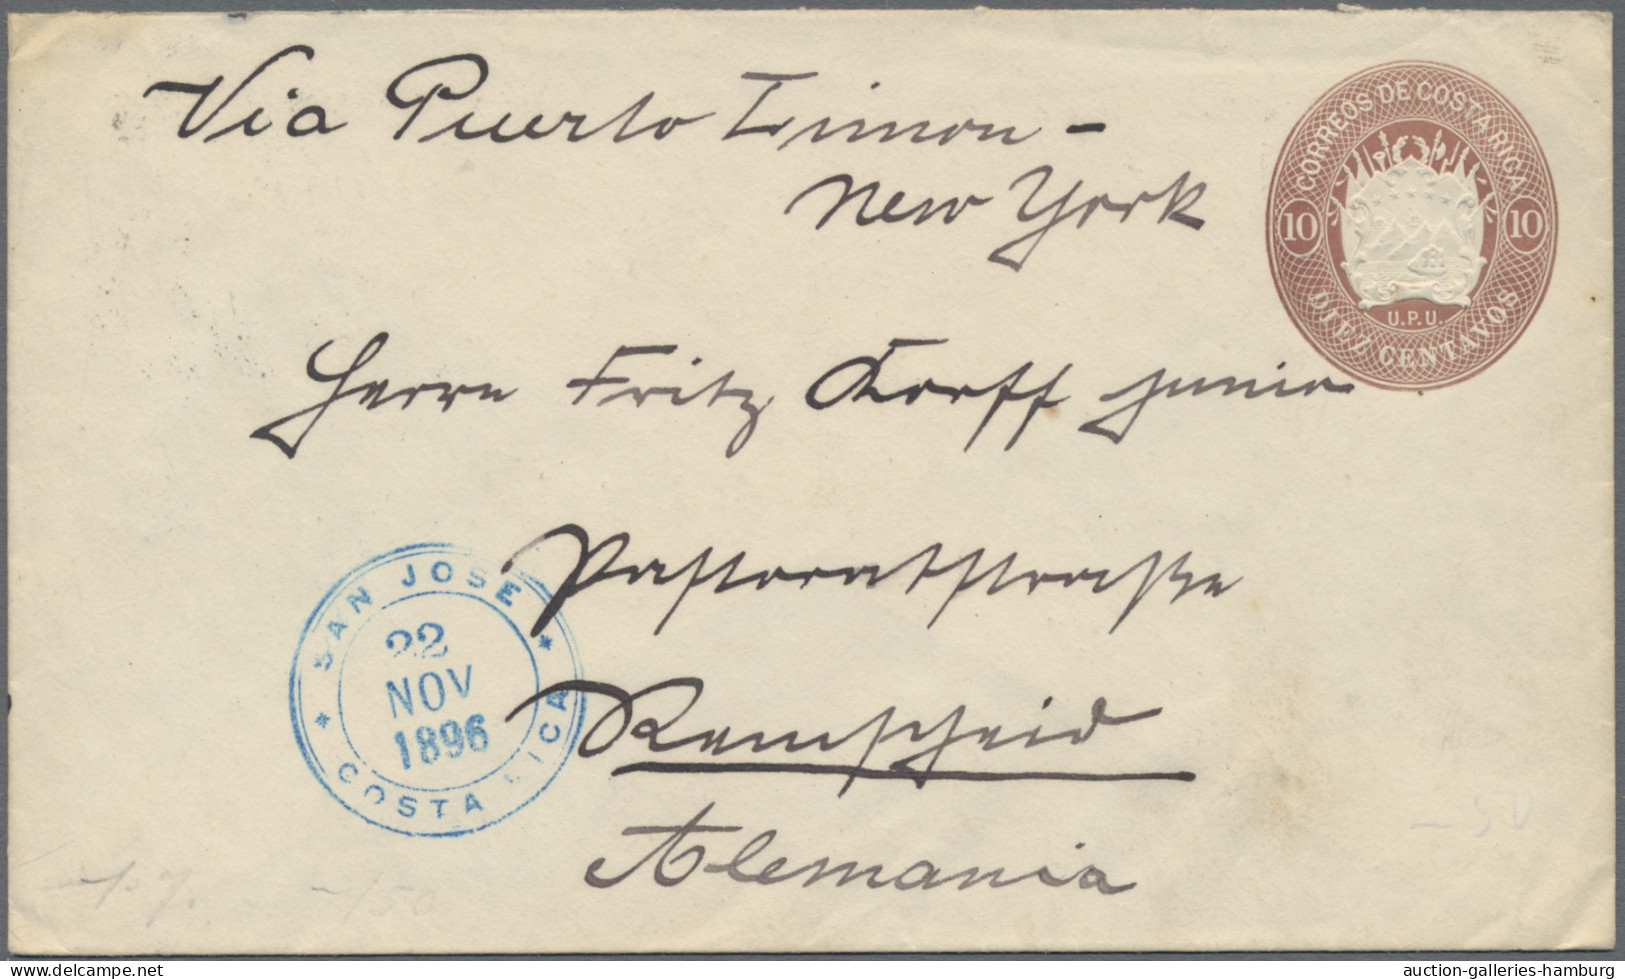 Via Puerto Limon -
New York
CORREOS DE COSTA RICA
10 10
U.P.U.
DIEZ CENTAVOS
Herrn Fritz Korff junior
Pastoratstraße
SAN JOSE
22
NOV
1896
COSTA RICA
Remscheid
Alemania
auction-galleries-hamburg